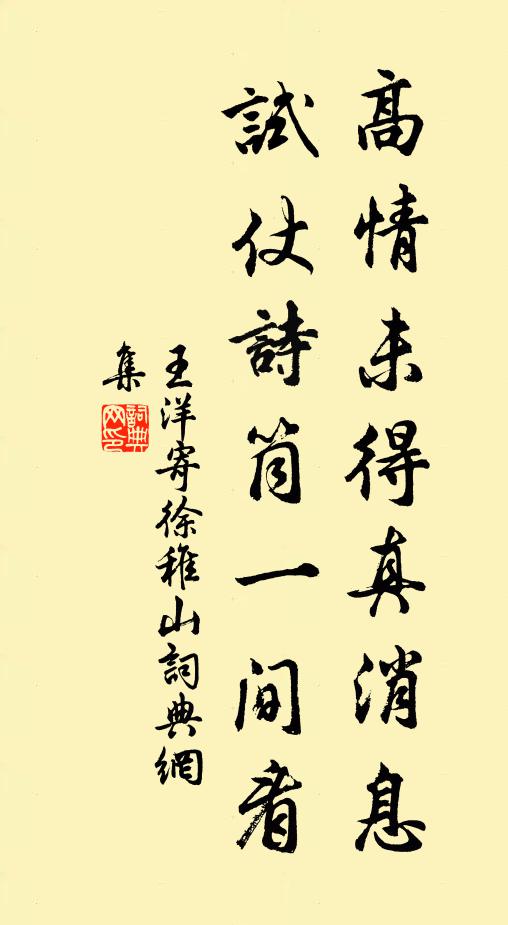 高情未得真消息
試仗詩筒一间看
王洋寄徐稚山詞典網
集
詞典
网印